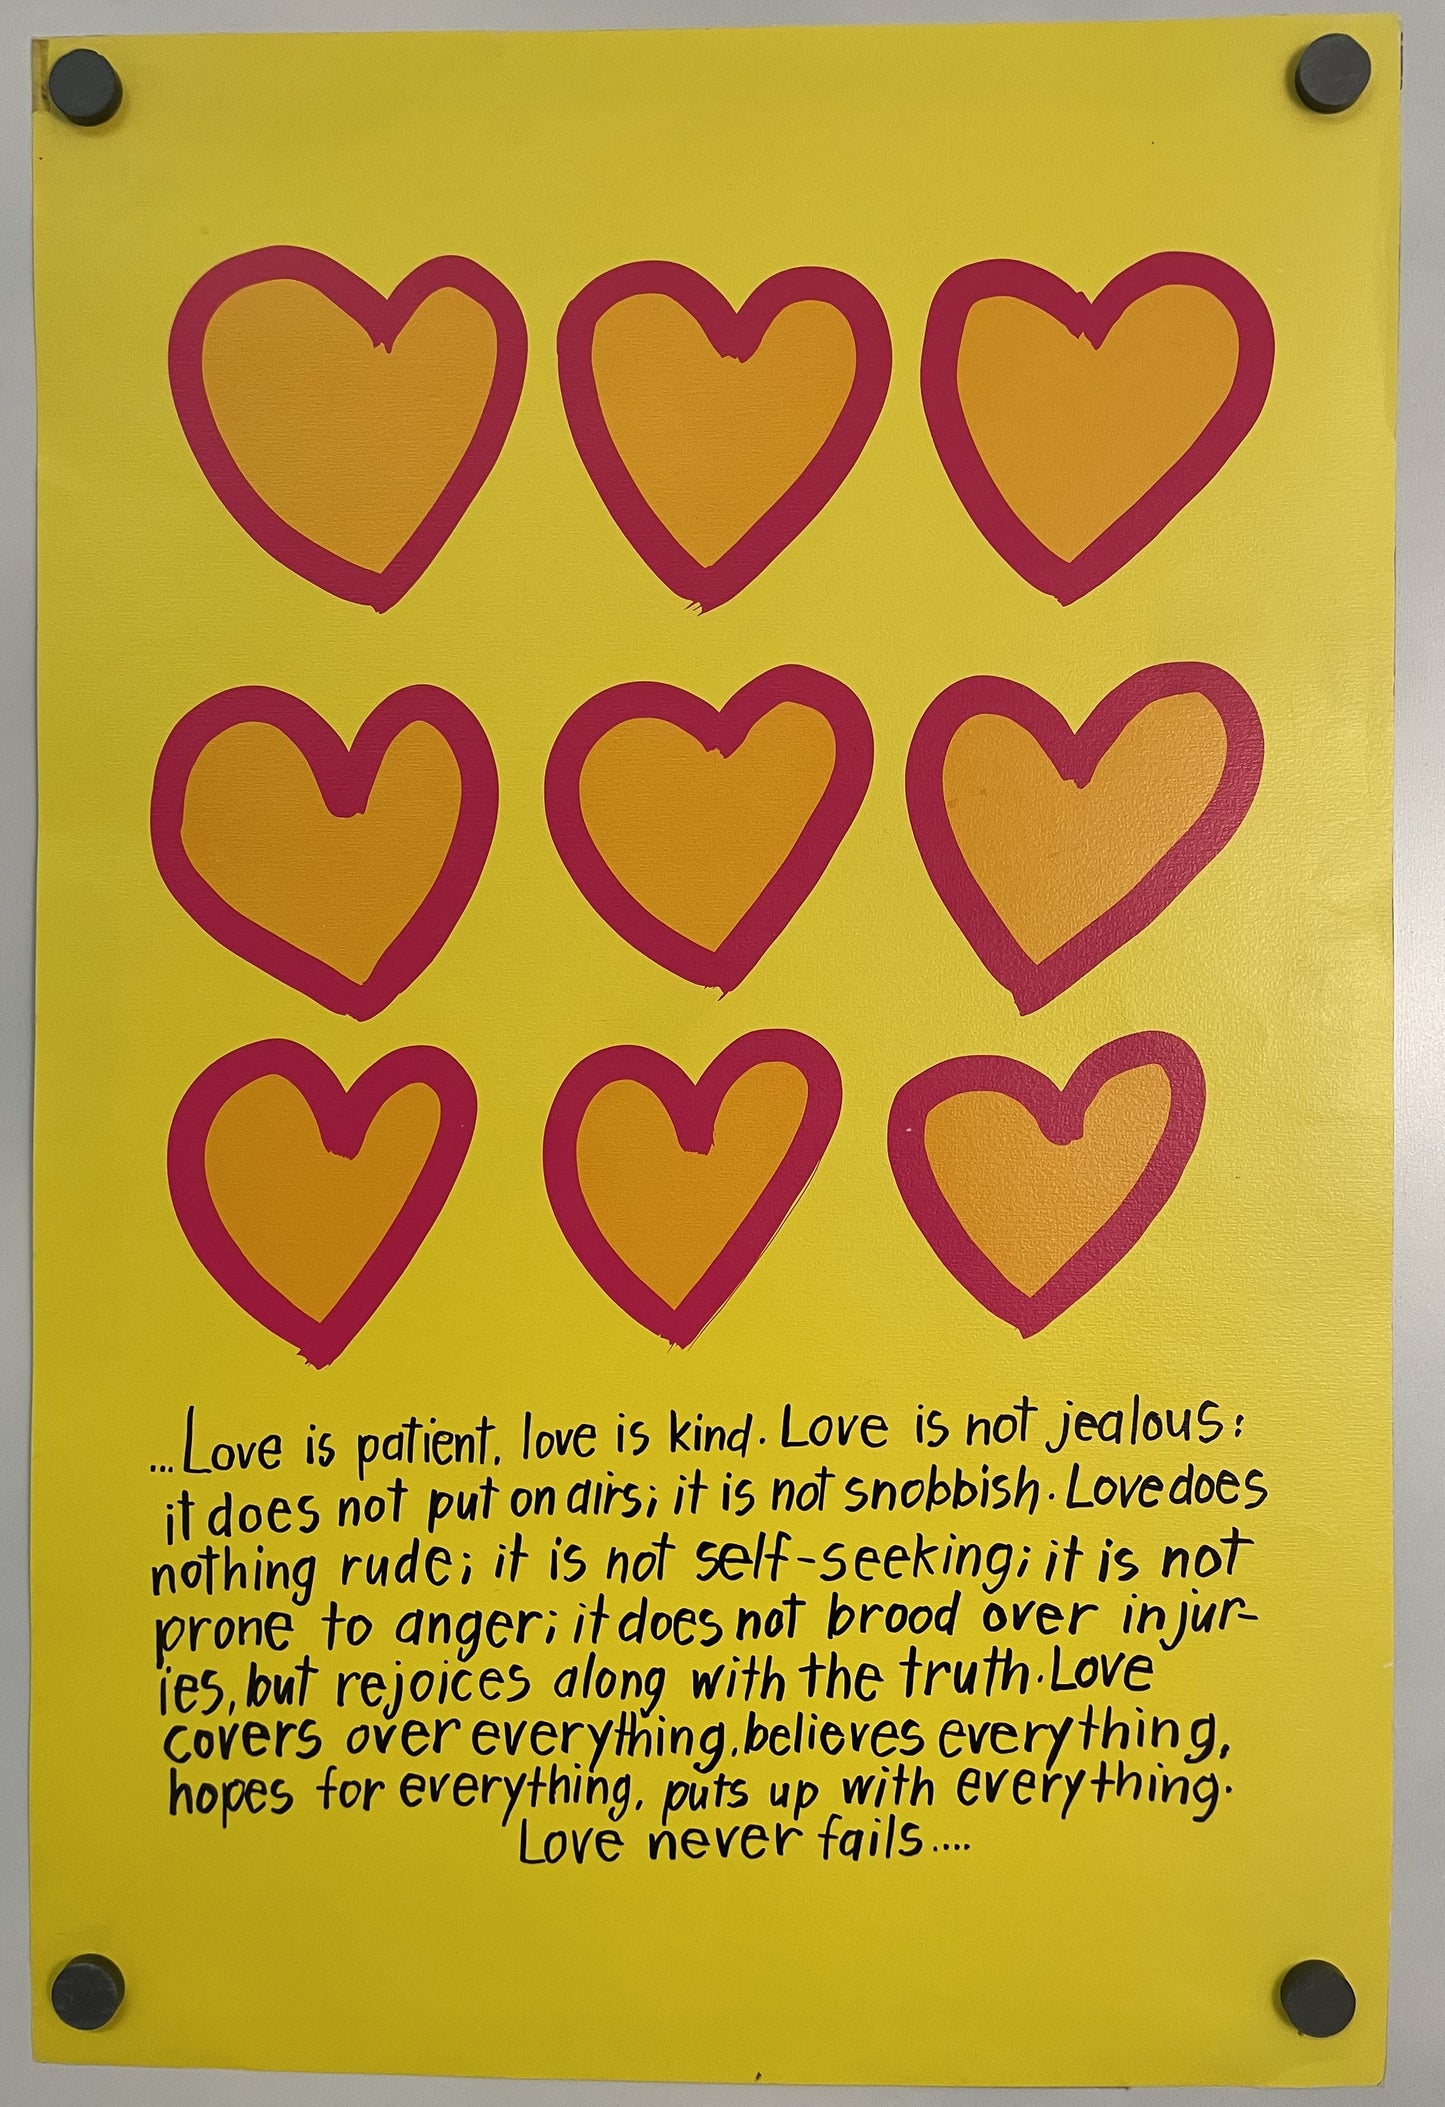 ...Love is patient, love is kind. Love is not jealous:
it does not put on airs; it is not snobbish. Love does
nothing rude; it is not self-seeking; it is not
prone to anger; it does not brood over injur-
ies, but rejoices along with the truth. Love
covers over everything, believes everything,
hopes for everything, puts up with everything.
Love never fails....